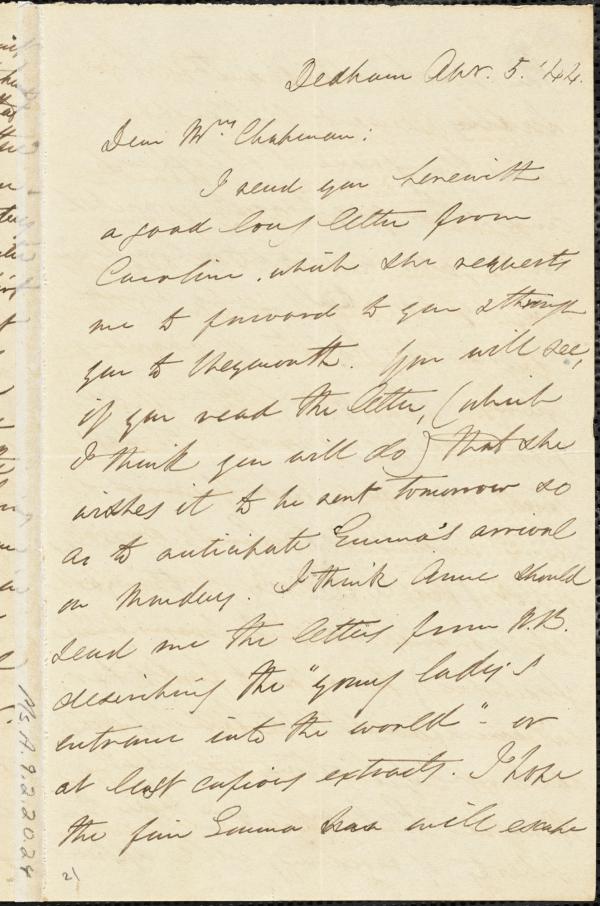 Dedham Apr. 5. '44.
Dear Mrs. Chapman:
I send you herewith
a good long letter from
Caroline, which she requests
me to forward to you & through
you to Weymouth. You will see,
if you read the letter, (which
I think you will do) that she
wishes it to be sent tomorrow so
as to anticipate Emma's arrival
on Monday. I think Anne should
send me the letters from N.B.
describing the "young lady's
entrance into the world" - or
at least copious extracts. I hope
the fair Emma will escape
Ms. A. 9. 2. 20. 24
21